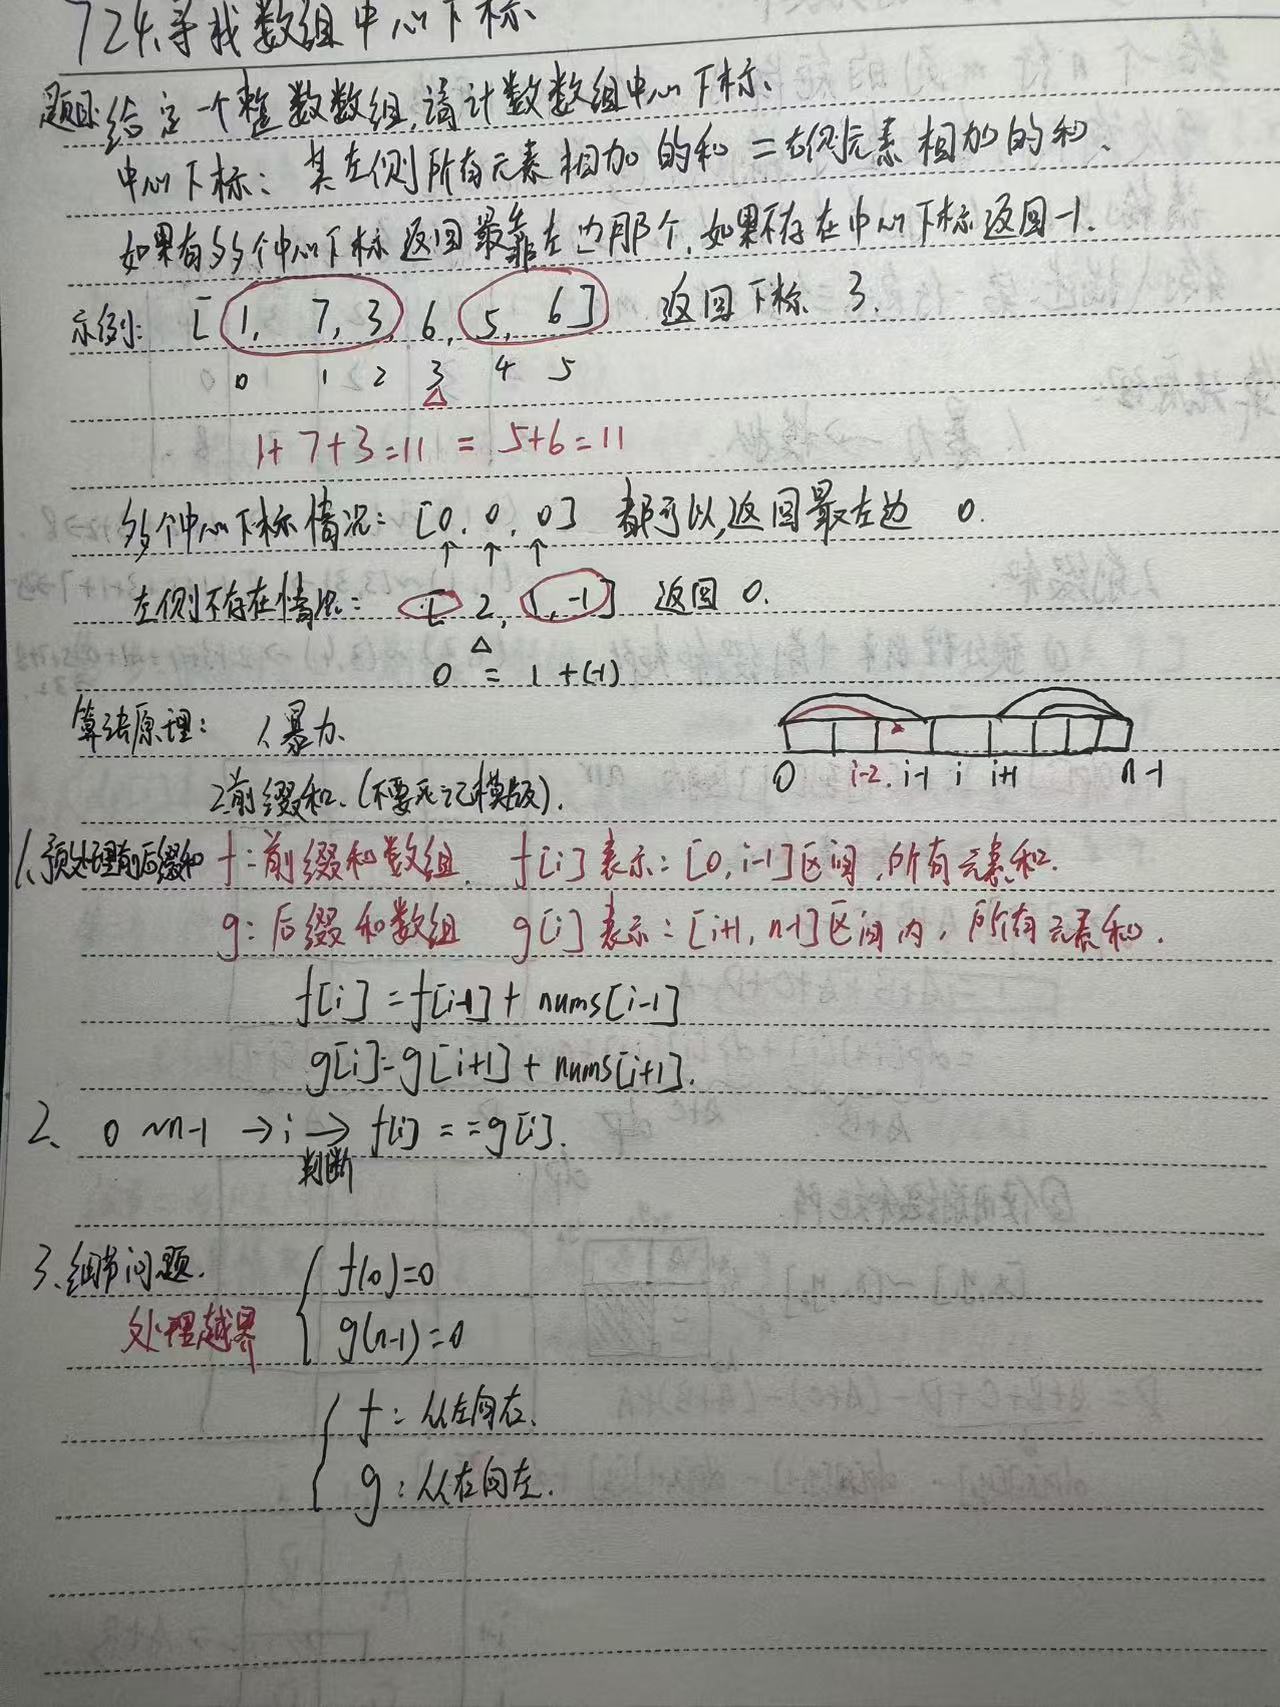 724.寻找数组中心下标
题目:给定一个整数数组,请计数数组中心下标、
中心下标:其左侧所有元素相加的和=右侧元素相加的和.
如果有多个中心下标返回最靠左边那个.如果不存在中心下标返回-1.
示例:[1, 7, 3, 6, 5, 6] 返回下标 3.
0 1 2 3 4 5
1+7+3=11 = 5+6=11
多个中心下标情况:[0, 0, 0] 都可以,返回最左边 0.
左侧不存在情况:[2, 1, -1] 返回 0.
0 = 1+(-1)
算法原理: 1暴力、
0 i-2. i-1 i i+1 n-1
2前缀和.(不要死记模版).
1、预处理前后缀和 f:前缀和数组. f[i]表示:[0,i-1]区间,所有元素和.
g:后缀和数组 g[i]表示:[i+1,n-1]区间内,所有元素和.
f[i]=f[i-1]+nums[i-1]
g[i]=g[i+1]+nums[i+1].
2、 0~n-1 →i → f[i]==g[i].
判断
3、细节问题.
处理越界
f(0)=0
g(n-1)=0
f:从左向右.
g:从右向左.